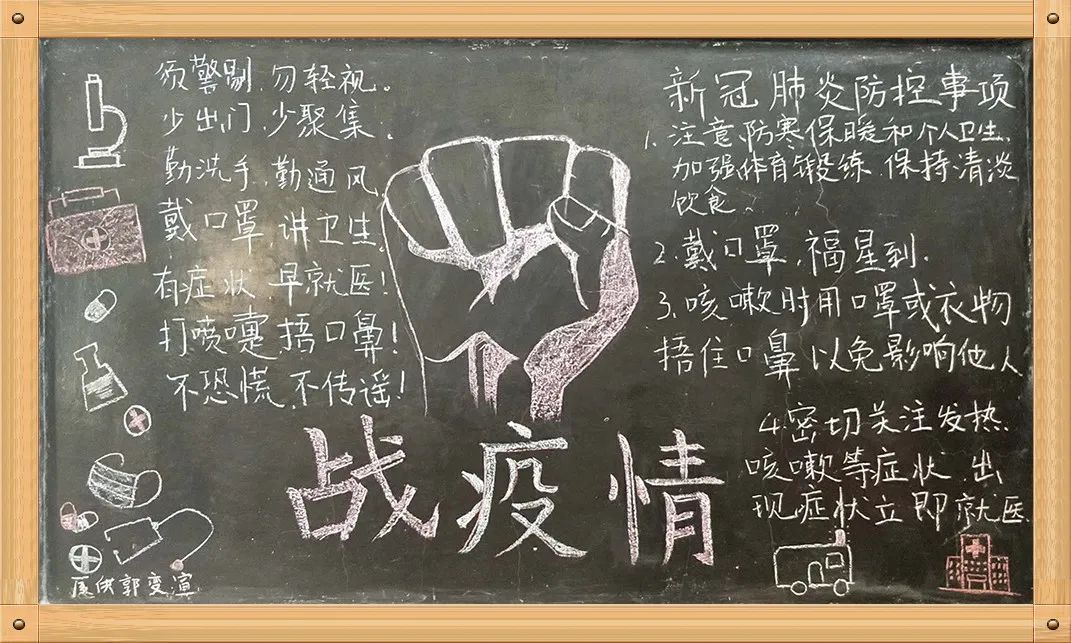 须警剔,勿轻视。
少出门,少聚集。
勤洗手,勤通风,
戴口罩 讲卫生,
有症状 早就医!
打喷嚏 捂口鼻!
不恐慌,不传谣!
战疫情
新冠肺炎防控事项
1.注意防寒保暖和个人卫生,
加强体育锻练,保持清淡
饮食。
2.戴口罩,福星到.
3.咳嗽时用口罩或衣物
捂住口鼻 以免影响他人
4.密切关注发热.
咳嗽等症状,出
现症状立即就医.